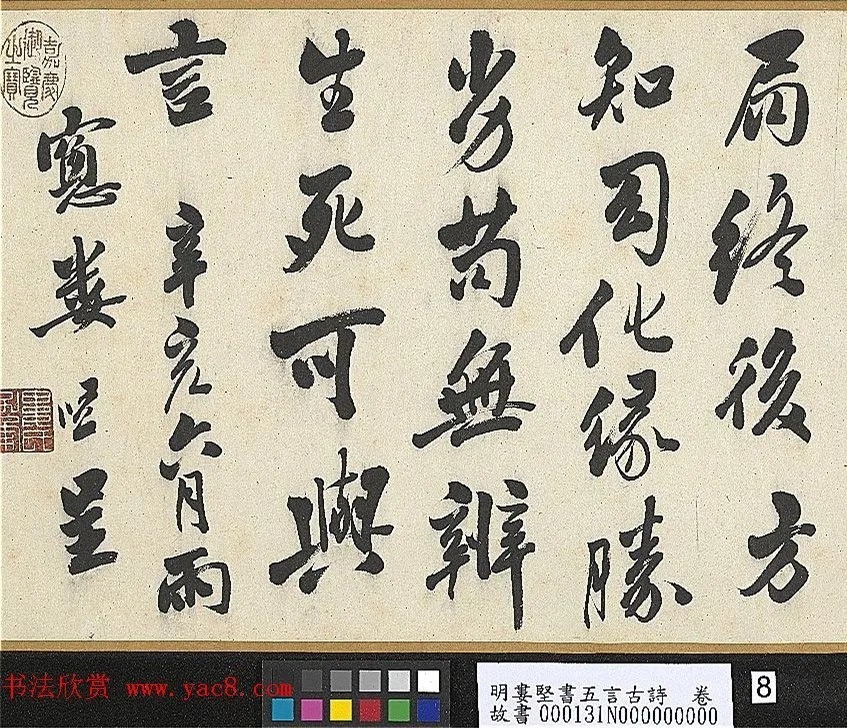 局終後方
知司化緣勝
劣苟無辨
生死可與
言 辛亥六月雨
窻婁堅呈
嘉慶御覽之寶
书法欣赏 www.yac8.com
明婁堅書五言古詩 卷
故書 000131N000000000
8